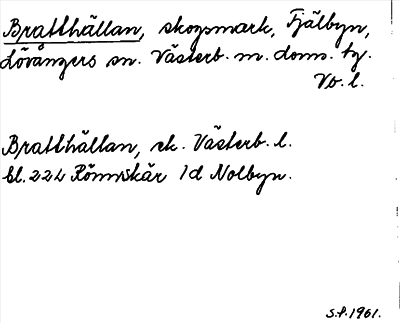 Bratthällan, skogsmark, Fjälbyn,
Lövångers sn. Västerb. m. doms. tg.
Vb. l.
Bratthällan, ek. Västerb. l.
bl. 224 Rönnskär 1d Nolbyn.
S.P. 1961.